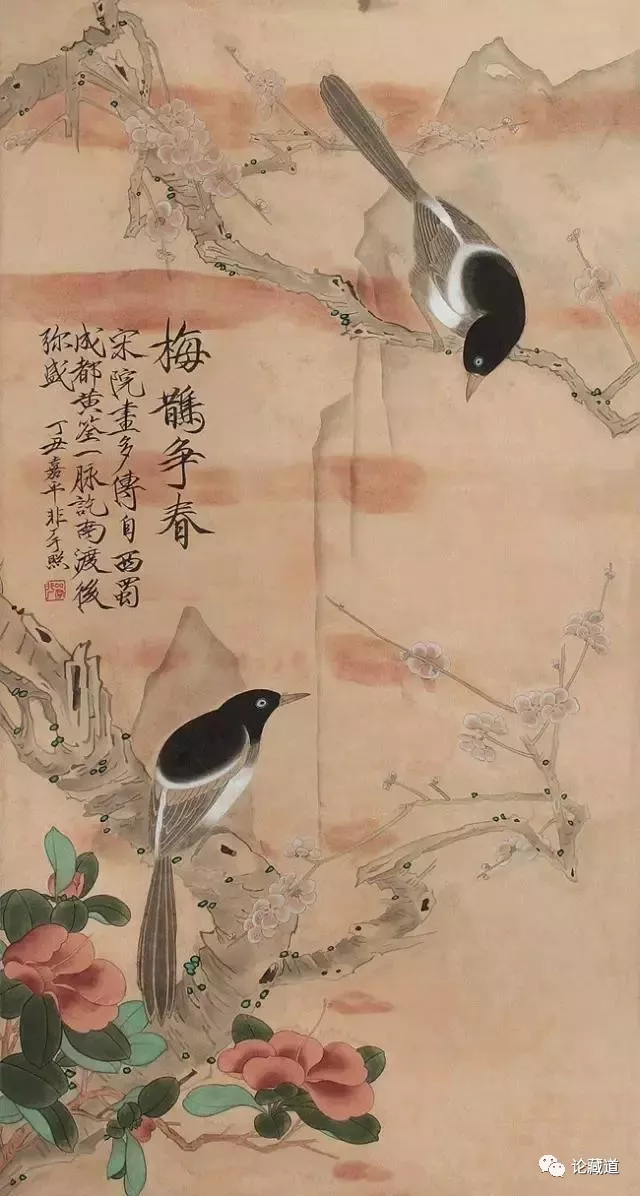 梅鵲争春
宋院畫多傳自西蜀
成都黄筌一脉訖南渡後
弥盛
丁丑嘉平非厂于照
论藏道